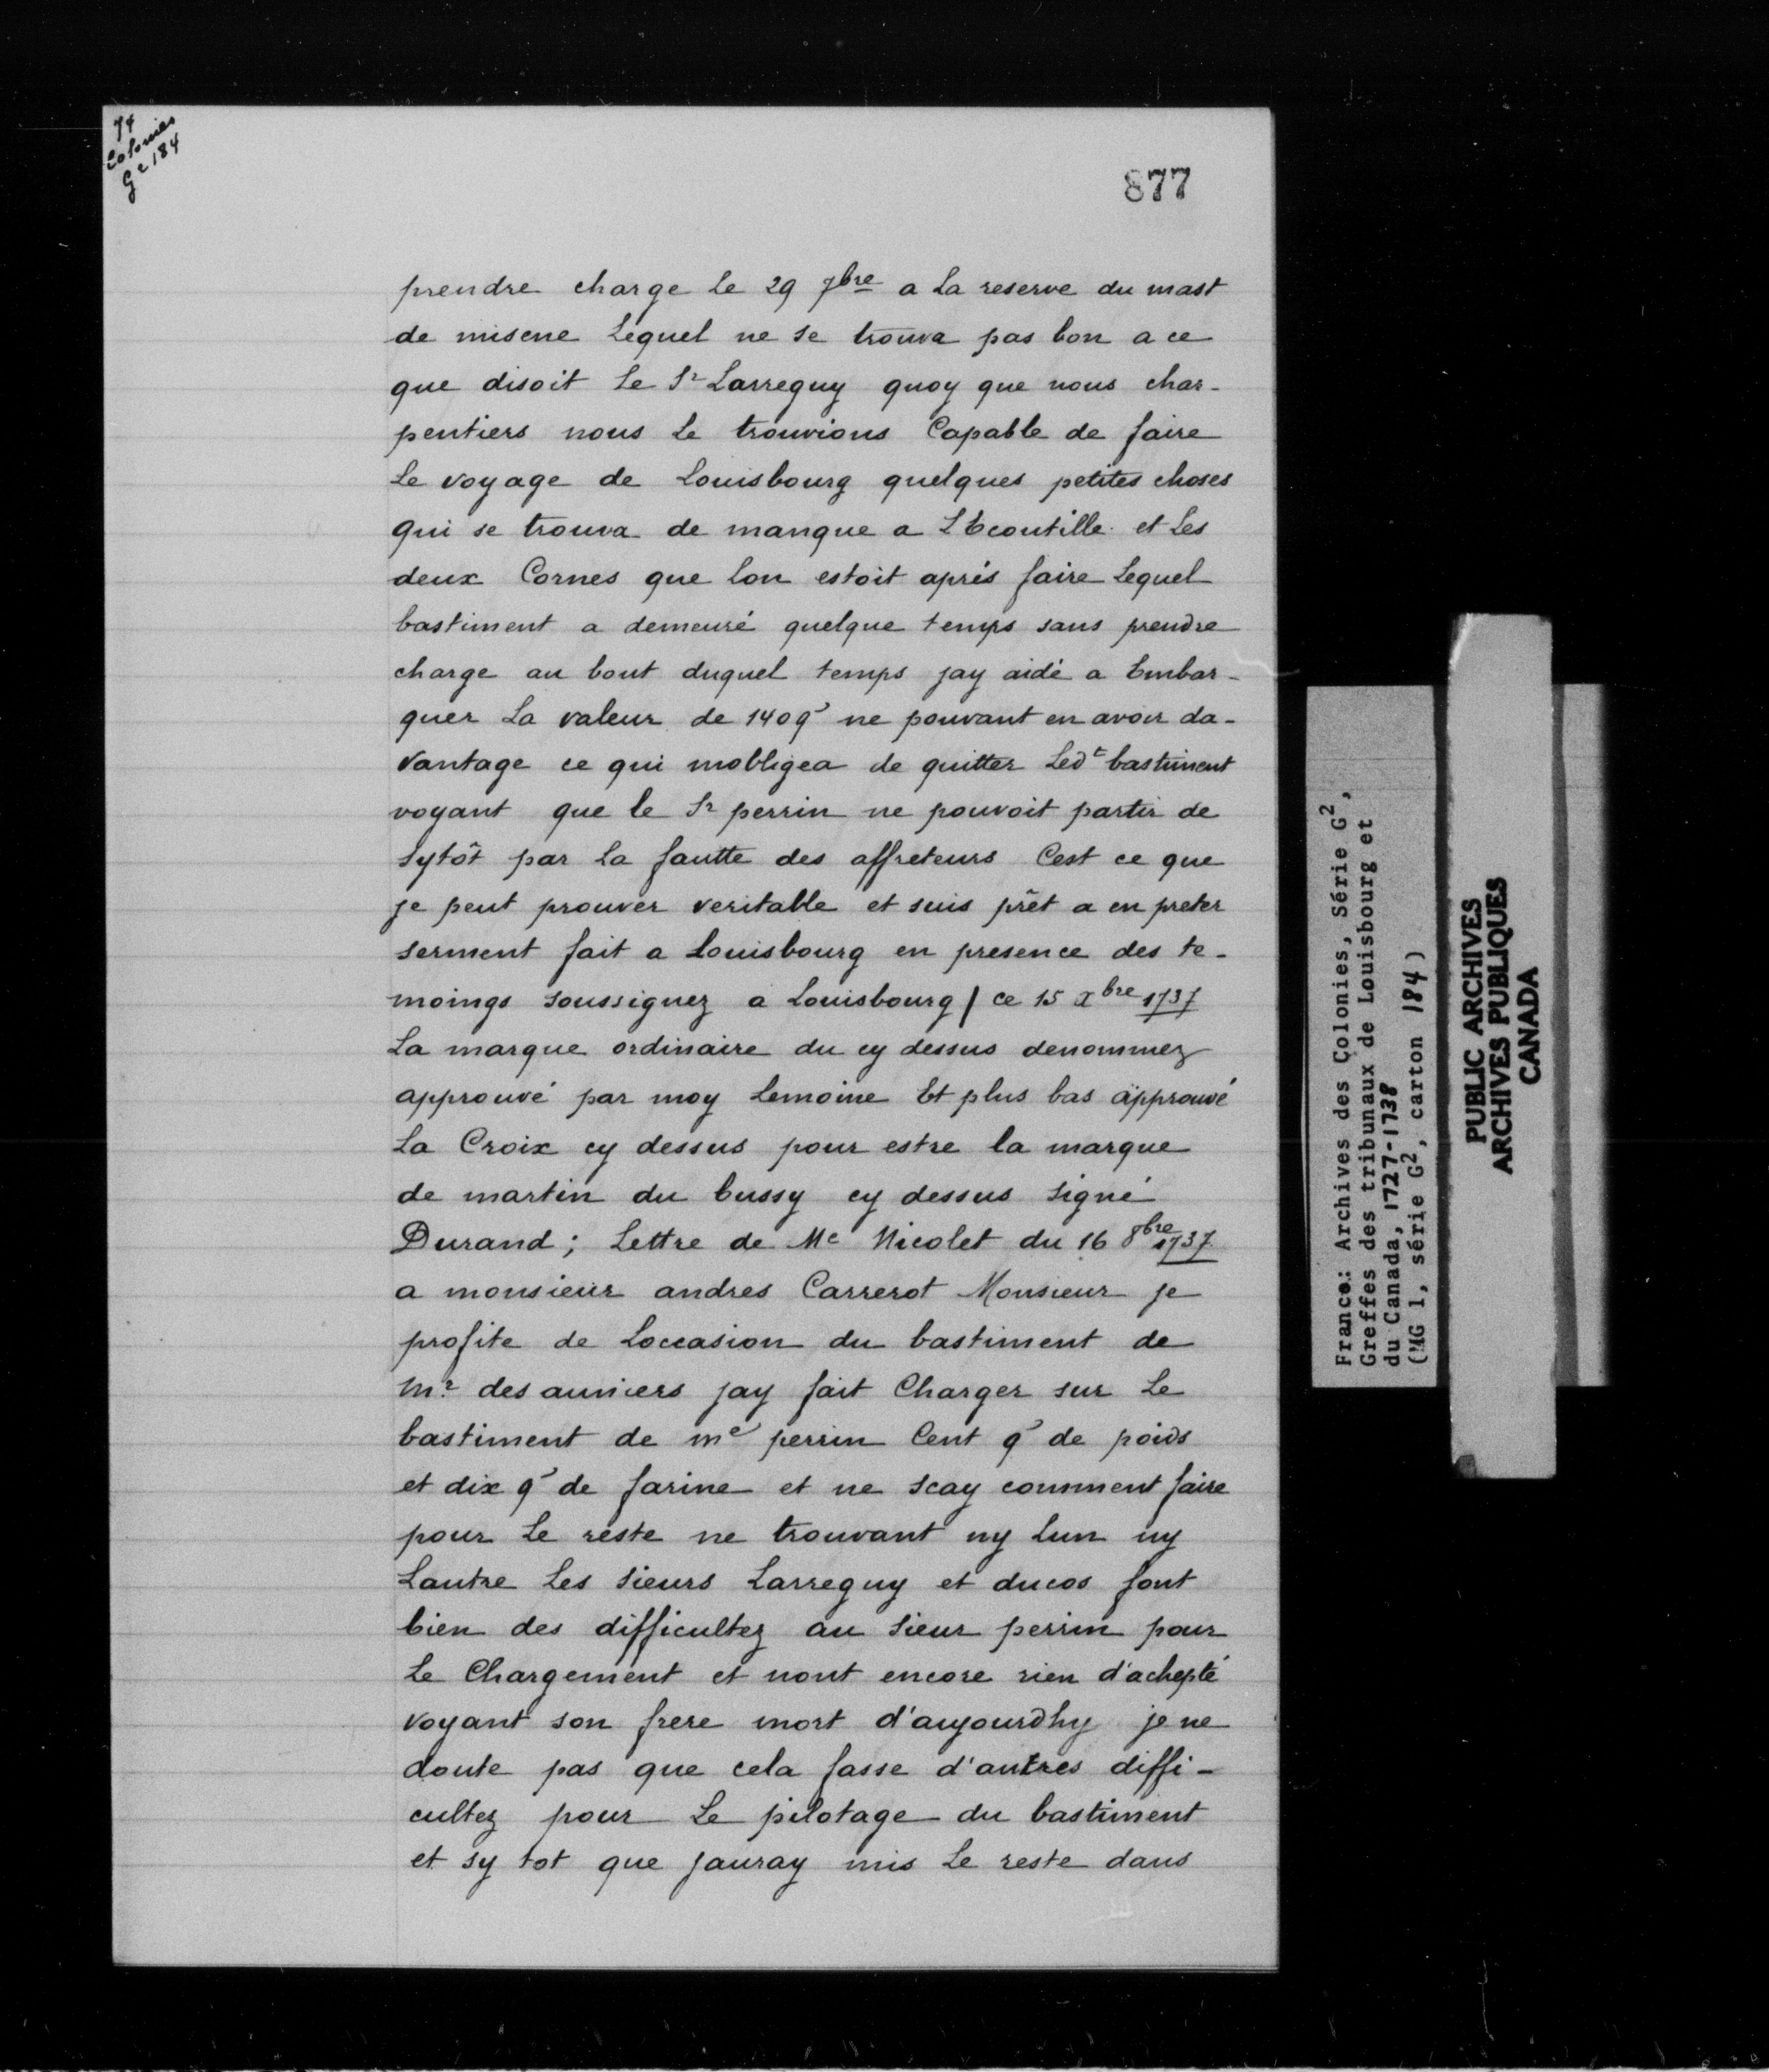 74
Colonies
G2 184
877
prendre charge Le 29 7bre a La reserve du mast
de misene Lequel ne se trouva pas bon a ce
que disoit Le Sr Larreguy quoy que nous char-
pentiers nous Le trouvions Capable de faire
Le voyage de Louisbourg quelques petites choses
qui se trouva de manque a L'Ecoutille et Les
deux Cornes que Lon estoit aprés faire Lequel
bastiment a demeuré quelque temps sans prendre
charge au bout duquel temps jay aidé a Embar-
quer La valeur de 140 q' ne pouvant en avoir da-
vantage ce qui mobligea de quitter Ledt bastiment
voyant que le Sr perrin ne pouvoit partir de
Sytôt par La fautte des affreteurs Cest ce que
je peut prouver veritable et suis prêt a en preter
serment fait a Louisbourg en presence des te-
moings soussignez a Louisbourg / ce 15 xbre 1737
La marque ordinaire du cy dessus denommez
approuvé par moy Lemoine Et plus bas approuvé
La Croix cy dessus pour estre la marque
de martin du bussy cy dessus signé
Durand ; Lettre de Me Nicolet du 16 8bre 1737
a monsieur andres Carrerot Monsieur je
profite de Loccasion du bastiment de
Mr. des auniers jay fait Charger sur Le
bastiment de me perrin Cent q' de poids
et dix q' de farine et ne scay comment faire
pour Le reste ne trouvant ny Lun ny
Lautre Les Sieurs Larreguy et ducos font
bien des difficultez au Sieur perrin pour
Le Chargement et nont encore rien d'achepté
voyant son frere mort d'aujourdhy je ne
doute pas que cela fasse d'autres diffi-
cultez pour Le pilotage du bastiment
et sy tot que jauray mis Le reste dans
France: Archives des Colonies, Série G2,
Greffes des tribunaux de Louisbourg et
du Canada, 1727-1738
(MG 1, série G2, carton 184)
PUBLIC ARCHIVES
ARCHIVES PUBLIQUES
CANADA